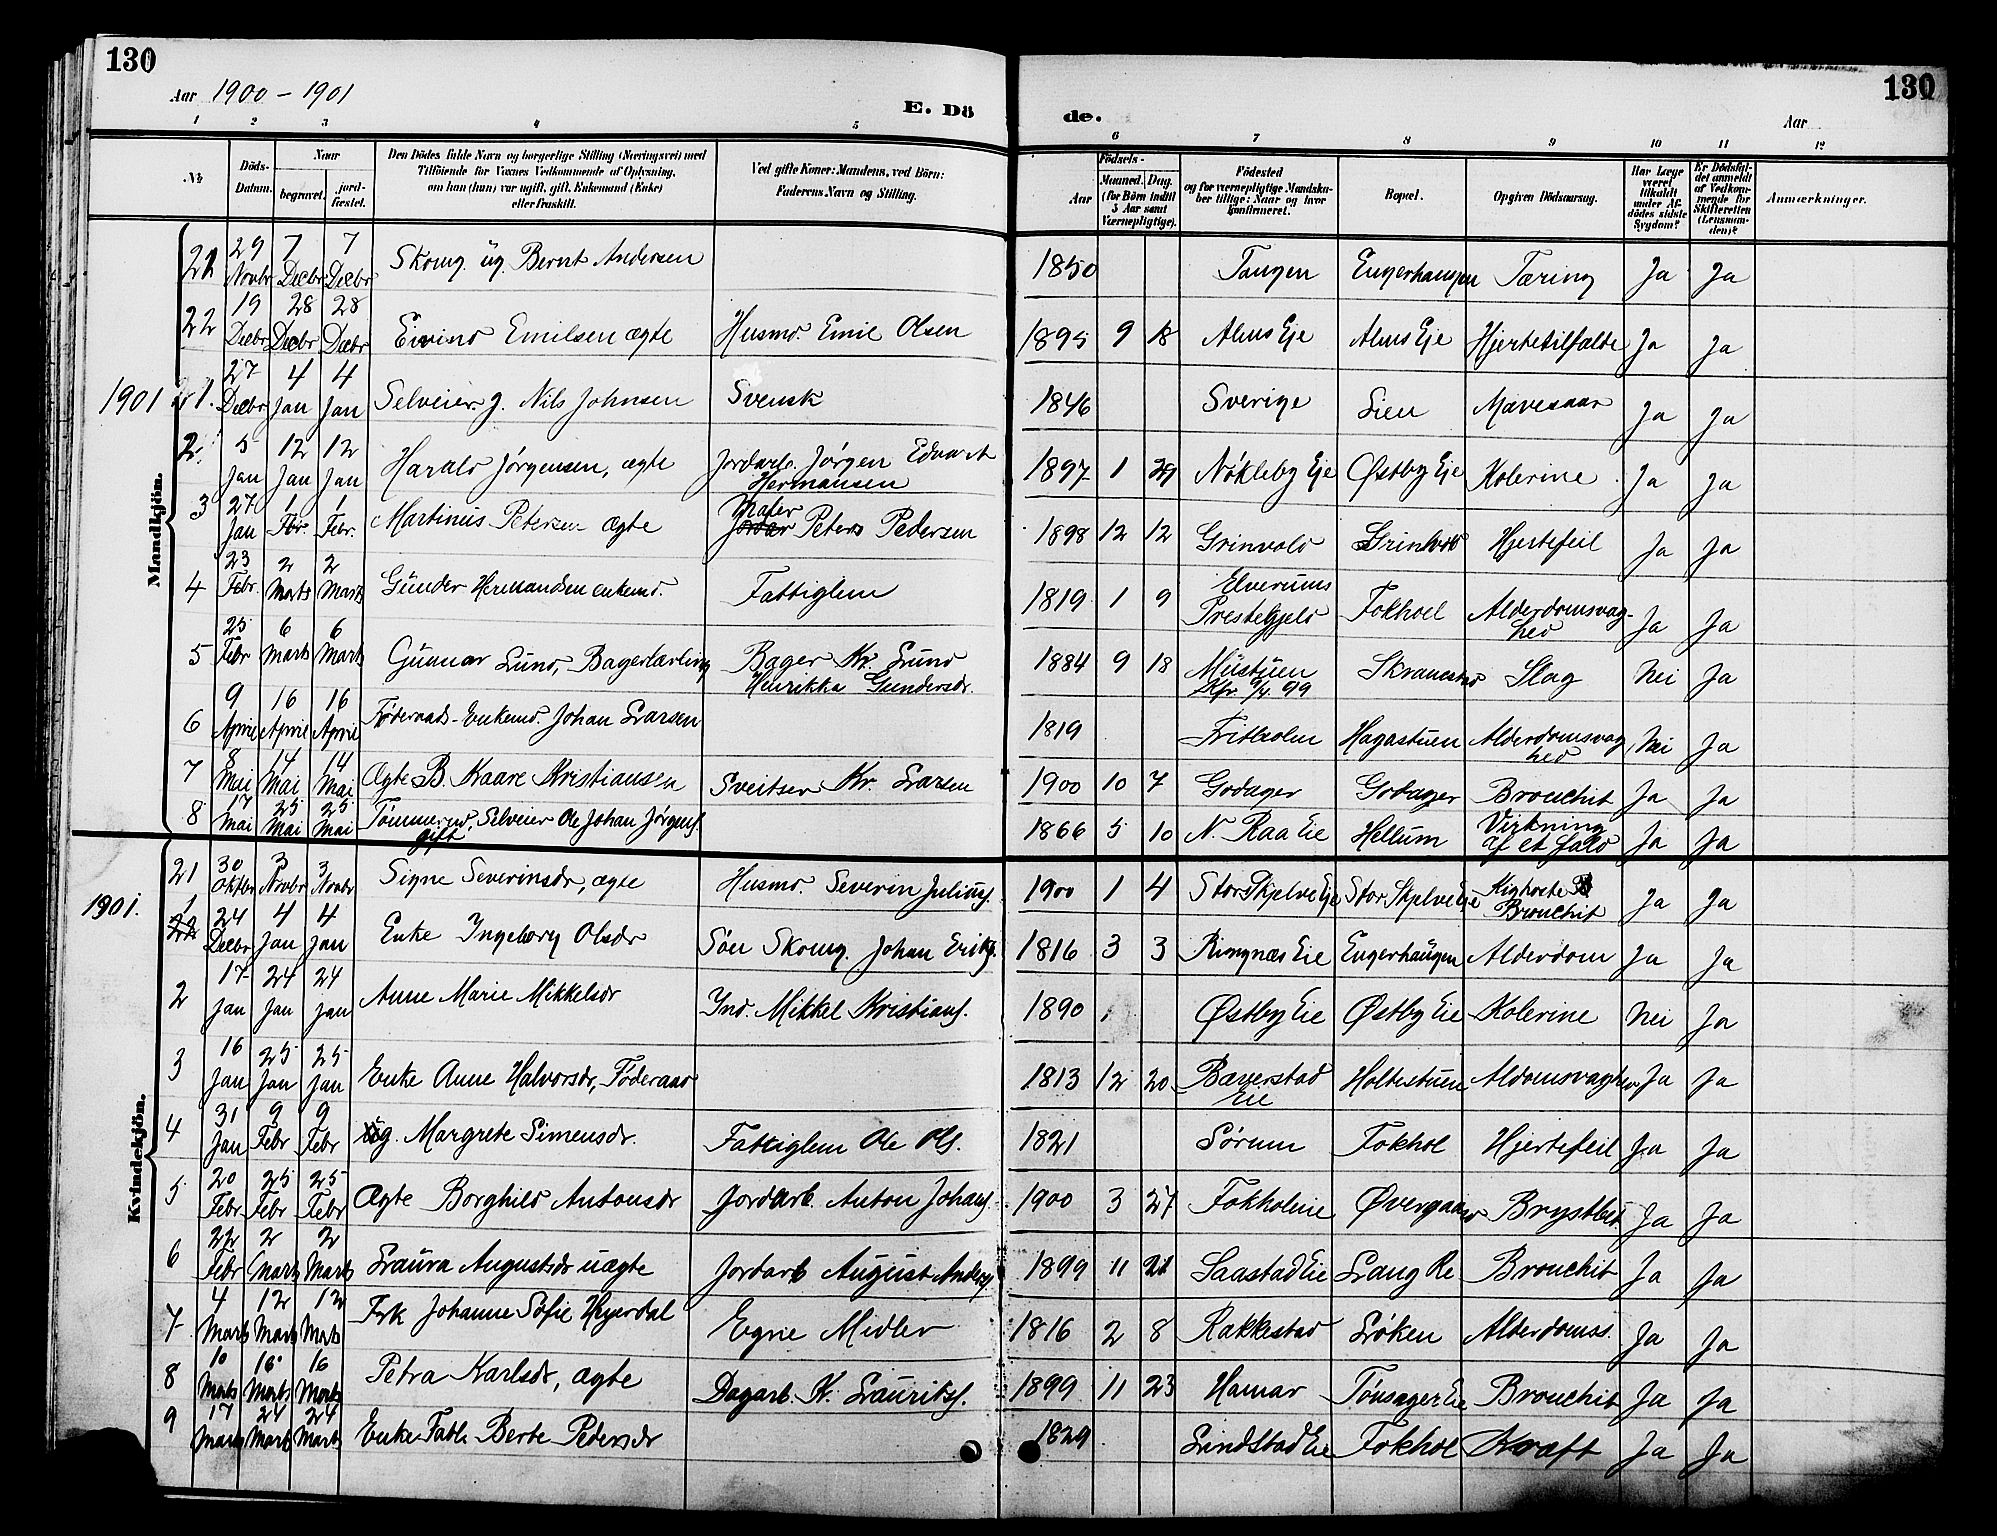 130
130
Aar 1900 - 1901
E. Dö
de.
Aar
1 2 3 4 5 6 7 8 9 10 11 12
№
Döds-Datum.
Naar
begravet.
jord-fæstet.
Den Dödes fulde Navn og borgerlige Stilling (Næringsvei) med
Tilföiende for Voxnes Vedkommende af Oplysning,
om han (hun) var ugift, gift, Enkemand (Enke)
eller fraskilt.
Ved gifte Koner: Mandens, ved Börn:
Faderens Navn og Stilling.
Födsels-
Aar
Maaned. Dag.
(for Börn indtil
5 Aar samt
Værnepligtige).
Födested
og for værnepligtige Mandska-
ber tillige: Naar og hvor
konfirmeret.
Bopæl.
Opgiven Dödsaarsag.
Har Læge
været
tilkaldt
under Af-
dödes sidste
Sygdom?
Er Dödsfal-
det anmeldt
af Vedkom-
mende for
Skifteretten
(Lensman-
den)?
Anmærkninger.
Mandkjön.
21 29 Novbr 7 Decbr 7 Decbr Skomg. ug. Bernt Andersen 1850 Tangen Engerhaugen Tæring Ja Ja
22 19 Decbr 28 Decbr 28 Decbr Eivind Emilsen ægte Husmd. Emil Olsen 1895 9 18 Alms Eje Alms Eje Hjertetilfælde Ja Ja
1901 1. 27 Decbr 4 Jan 4 Jan Selveier g. Nils Johnsen Svensk 1846 Sverige Lien Mavesaar Ja Ja
2. 5 Jan 12 Jan 12 Jan Harald Jørgensen, ægte Jordarb. Jørgen Edvart Hermansen 1897 1 29 Nøkleby Eje Østby Eje Kolerine Ja Ja
3 27 Jan 1 Febr. 1 Febr. Martinus Petersen ægte Maler Peters Pedersen 1898 12 12 Grinvold Grinvold Hjertefeil Ja Ja
4 23 Febr. 2 Marts 2 Marts Gunder Hermandsen enkemd. Fattiglem 1819 1 9 Elverums Prestegjeld Fokhol Alderdomsvaghed Ja Ja
5 25 Febr 6 Marts 6 Marts Gunnar Lund, Bagerlærling Bager Kr. Lund Henrikka Gundersdr. 1884 9 18 Mustuen Kfr. 9/4 99 Skranestad Slag Nei Ja
6 9 April 16 April 16 April Føderaads-Enkemd. Johan Larsen 1819 Fritholen Hagastuen Alderdomsvaghed Nei Ja
7 8 Mai 14 Mai 14 Mai Ægte B. Kaare Kristiansen Sveitser Kr. Larsen 1900 10 7 Godager Godager Bronchit Ja Ja
8 17 Mai 25 Mai 25 Mai Tømmermd. Selveier Ole Johan Jørgens. gift 1866 5 10 N. Raa Eie Hellum Virkning af et fald Ja Ja
Kvindekjön.
21 30 Oktbr 3 Novbr 3 Novbr Signe Severinsdr, ægte Husmd. Severin Julius. 1900 1 4 Stor Skjelve Eje Stor Skjelve Eje Kighoste Bronchit Ja Ja
1901. 1 24 Decbr 4 Jan 4 Jan Enke Ingeborg Olsdr Søn Skomg. Johan Eriks. 1816 3 3 Ringnæs Eie Engerhaugen Alderdom Ja Ja
2 17 Jan 24 Jan 24 Jan Anne Marie Mikkelsdr Ind. Mikkel Kristians. 1890 Østby Eie Østby Eie Kolerine Nei Ja
3 16 Jan 25 Jan 25 Jan Enke Anne Halvorsdr, Føderaad 1813 12 20 Bæverstad Eie Holtestuen Aldomsvaghed Ja Ja
4 31 Jan 9 Febr 9 Febr Ug. Margrete Simensdr. Fattiglem Ole Ols. 1821 Sørum Fokhol Hjertefeil Ja Ja
5 20 Febr 25 Febr 25 Febr Ægte Borghild Antonsdr Jordarb. Anton Johans. 1900 3 27 Fokholeie Øvergaard Brystbet. Ja Ja
6 22 Febr 2 Marts 2 Marts Laura Augustsdr uægte Jordarb August Anders. 1899 11 21 Saastad Eie Lang Re Bronchit Ja Ja
7 4 Marts 12 Marts 12 Marts Frk Johanne Sofie Heyerdal Egne Midler 1816 2 8 Rakkestad Løken Alderdomss. Ja Ja
8 10 Marts 16 Marts 16 Marts Petra Karlsdr, ægte Dagarb. K. Laurits. 1899 11 23 Hamar Tønsager Eie Bronchit Ja Ja
9 17 Marts 24 Marts 24 Marts Enke Fattl Berte Pedersdr 1829 Lindstad Eie Fokhol Kræft Ja Ja